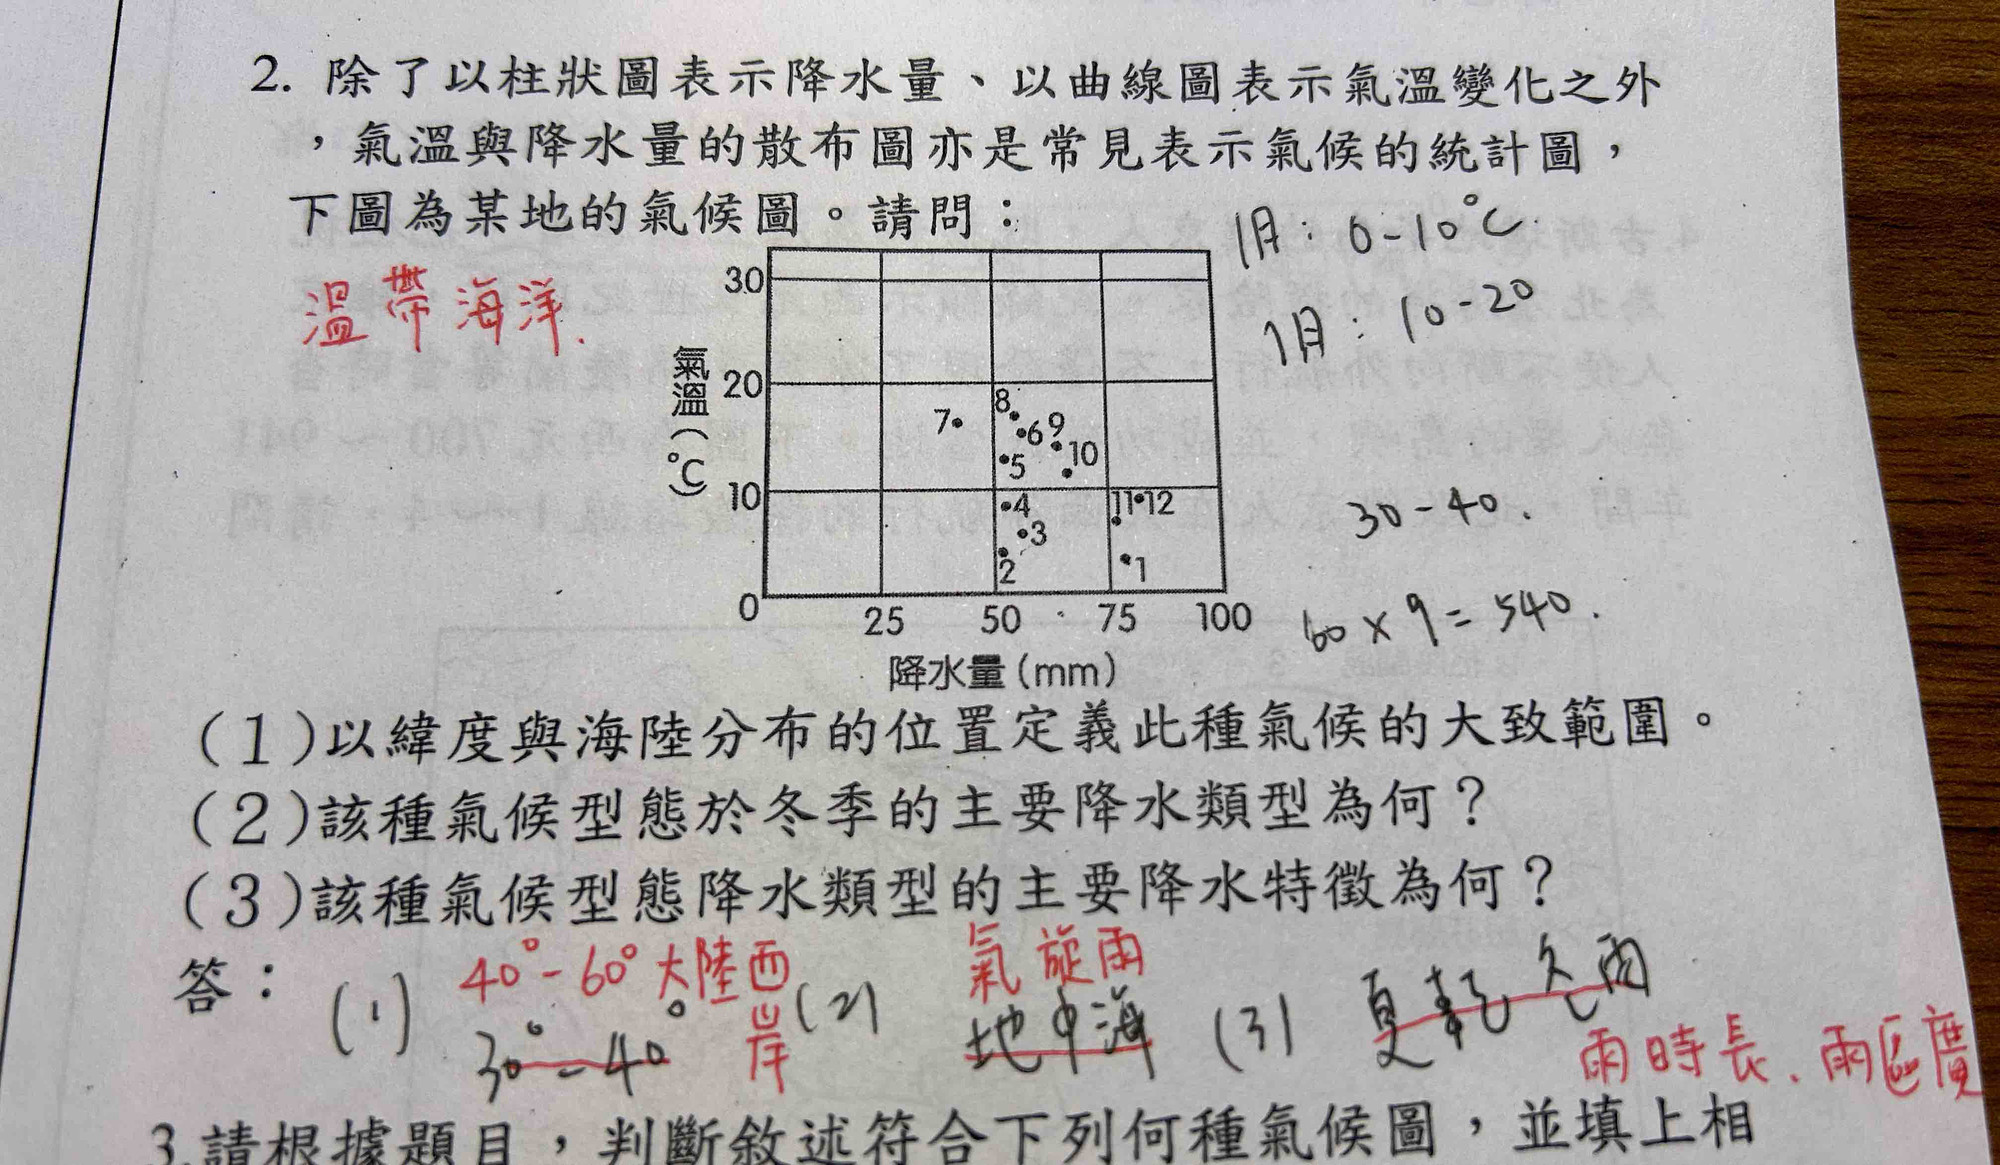 2. 除了以柱狀圖表示降水量、以曲線圖表示氣溫變化之外
，氣溫與降水量的散布圖亦是常見表示氣候的統計圖，
下圖為某地的氣候圖。請問：
1月：0-10°C.
溫帶海洋.
7月：10-20
30
氣溫(℃)
20
8
7
6 9
10
5
10
4
11 12
3
2
1
30-40.
0
25 50 75 100
60×9=540.
降水量(mm)
(1)以緯度與海陸分布的位置定義此種氣候的大致範圍。
(2)該種氣候型態於冬季的主要降水類型為何？
(3)該種氣候型態降水類型的主要降水特徵為何？
答：
(1) 40°-60°大陸西岸
30°-40°
(2) 氣旋雨
地中海
(3) 夏乾冬雨
雨時長、雨區廣
3.請根據題目，判斷敘述符合下列何種氣候圖，並填上相